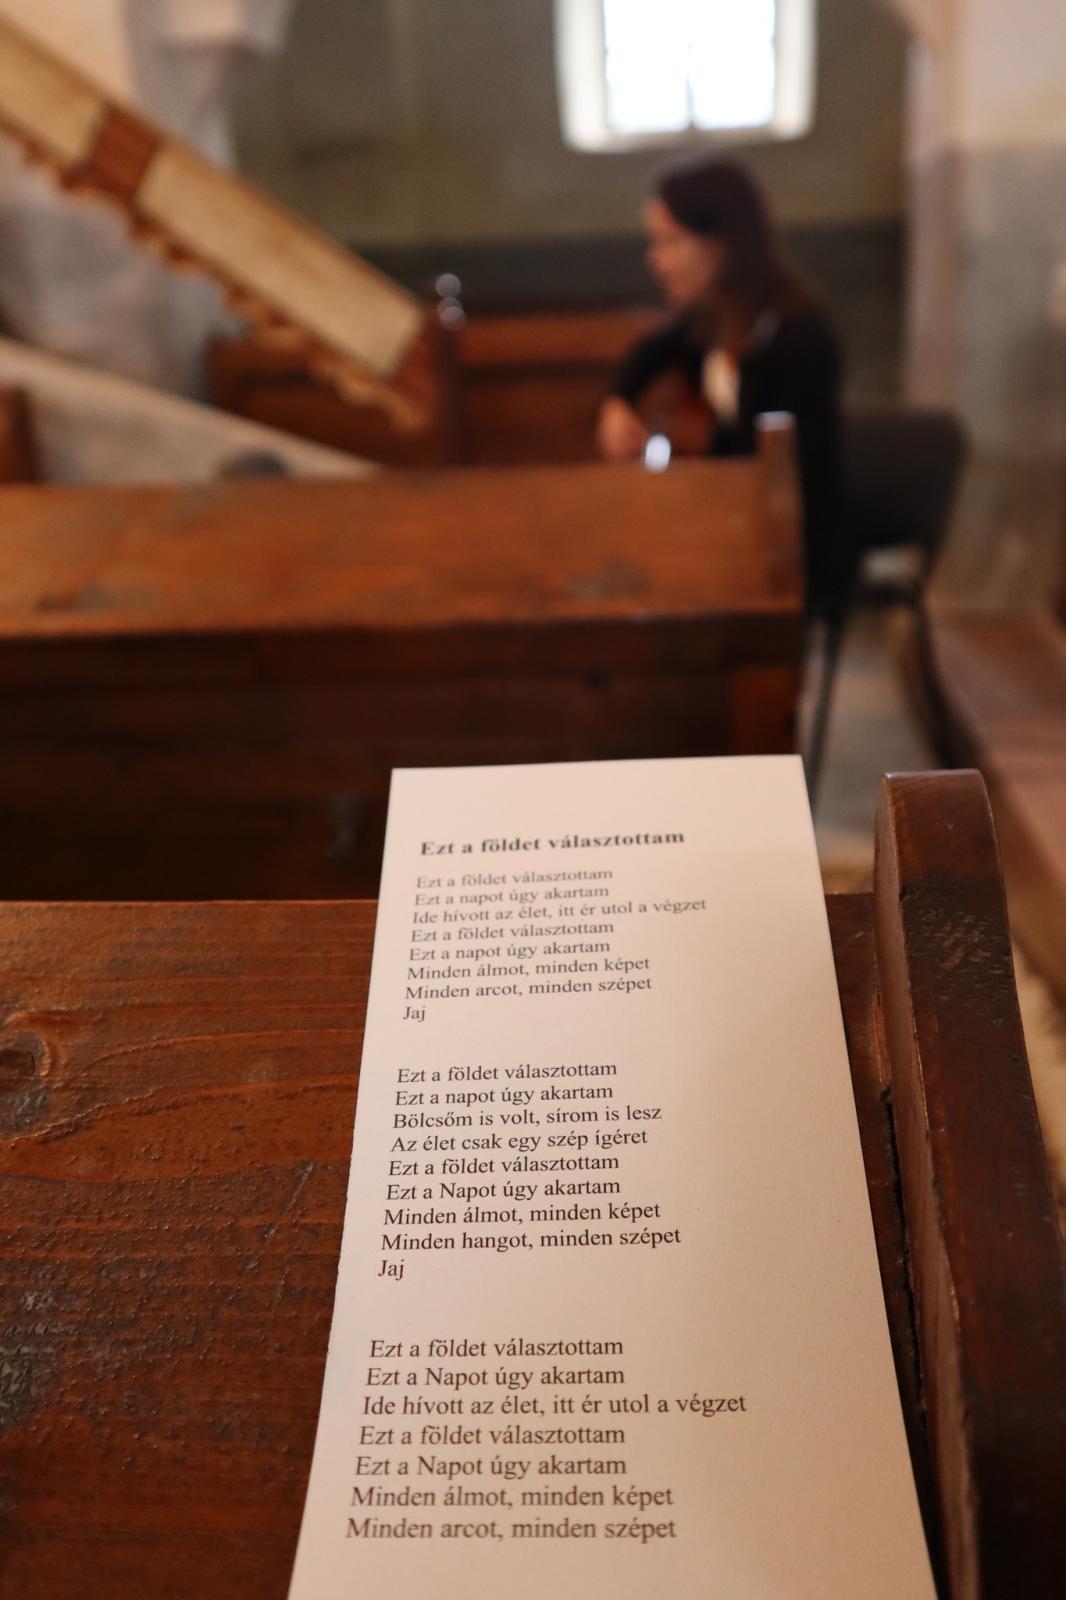 Ezt a földet választottam
Ezt a földet választottam
Ezt a napot úgy akartam
Ide hívott az élet, itt ér utol a végzet
Ezt a földet választottam
Ezt a napot úgy akartam
Minden álmot, minden képet
Minden arcot, minden szépet
Jaj
Ezt a földet választottam
Ezt a napot úgy akartam
Bölcsőm is volt, sírom is lesz
Az élet csak egy szép ígéret
Ezt a földet választottam
Ezt a Napot úgy akartam
Minden álmot, minden képet
Minden hangot, minden szépet
Jaj
Ezt a földet választottam
Ezt a Napot úgy akartam
Ide hívott az élet, itt ér utol a végzet
Ezt a földet választottam
Ezt a Napot úgy akartam
Minden álmot, minden képet
Minden arcot, minden szépet